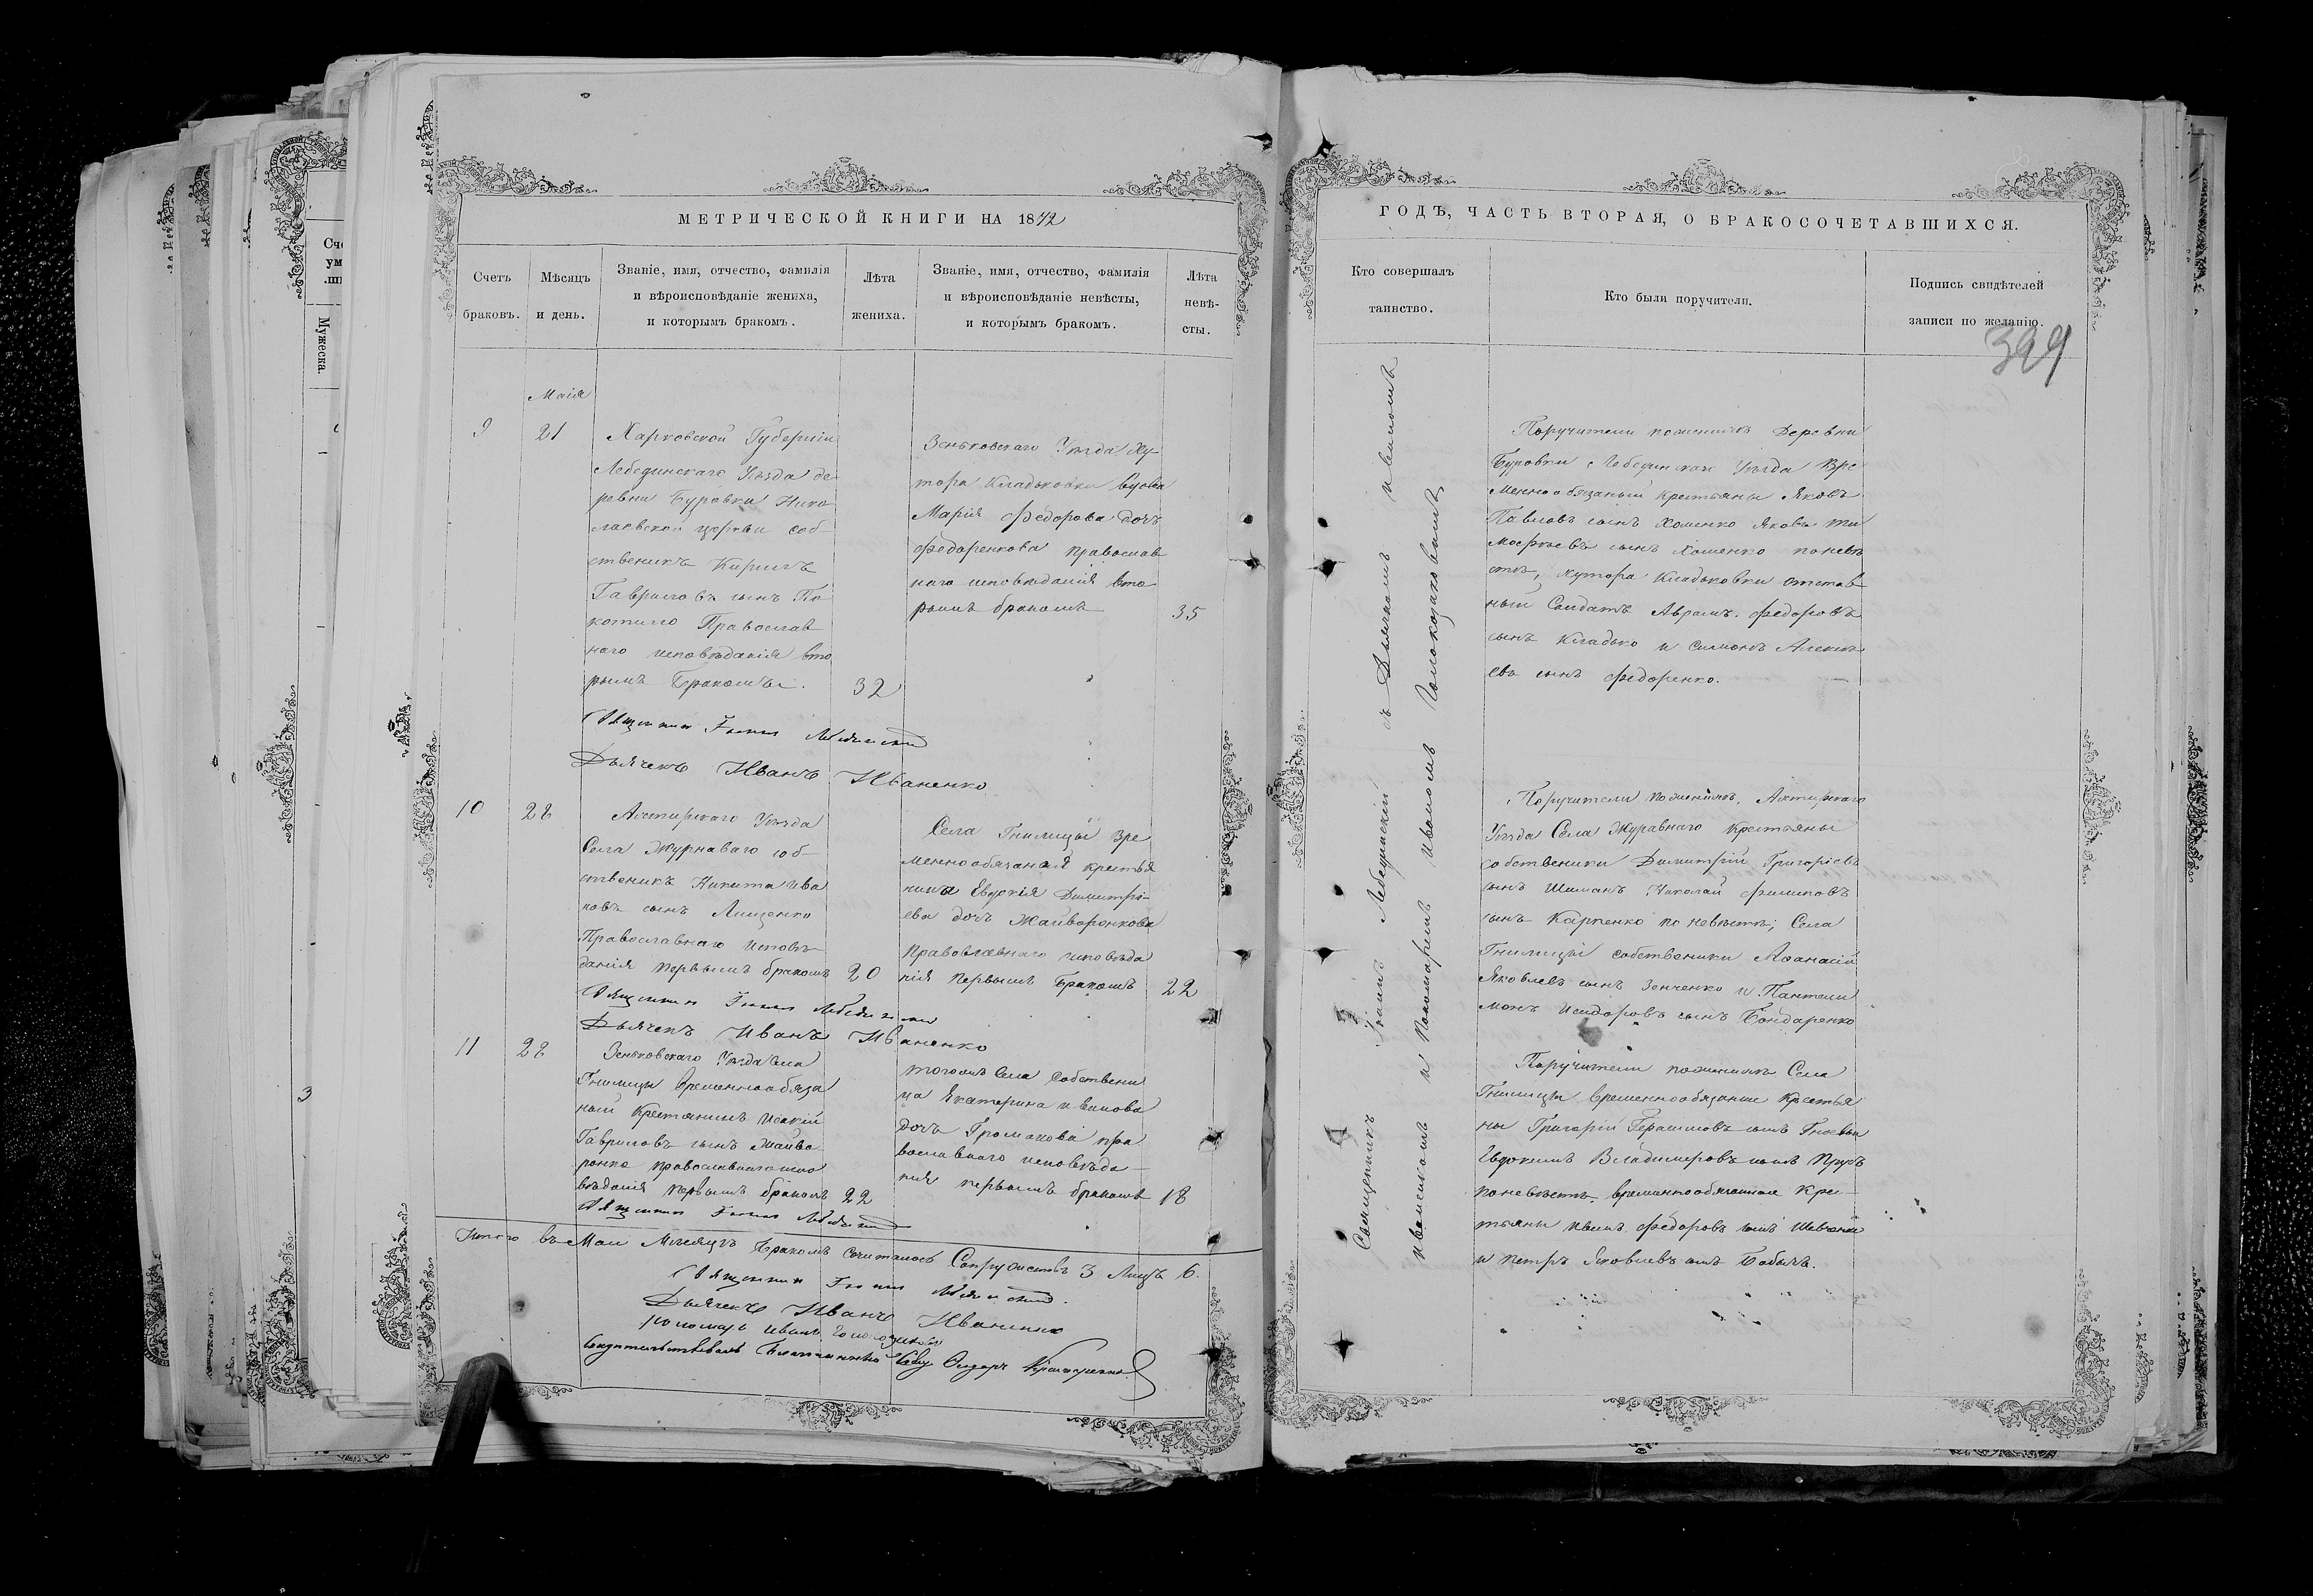 МЕТРИЧЕСКОЙ КНИГИ НА 1872
Счетъ
браковъ.
Мѣсяцъ
и день.
Званіе, имя, отчество, фамилія
и вѣроисповѣданіе жениха,
и которымъ бракомъ.
Лѣта
жениха.
Званіе, имя, отчество, фамилія
и вѣроисповѣданіе невѣсты,
и которымъ бракомъ.
Лѣта
невѣ-
сты.
Маія
9
21
Харковской Губерніи
Лебединскаго Уѣзда де
ревни Буровки Нико
лаевской церкви соб-
ственикъ Кирилъ
Гавриловъ сынъ По
котило Православ
наго исповѣданія вто
рымъ Бракомъ.
32
Зеньковскаго Уѣзда Ху-
тора Кладьковки вдова
Марія Федорова дочь
Федоренкова православ
наго исповѣданія вто
рымъ бракомъ
35
Дьячекъ Иванъ Иваненко
10
28
Ахтирскаго Уѣзда
Села Журнаваго соб-
ственикъ Никита Ива
новъ сынъ Лищенко
Православнаго исповѣ-
данія первымъ бракомъ
20
Села Гнилицы вре
меннообязаная крестья
нина Евдокія Димитрі-
ева дочь Жайворонкова
православнаго исповѣда
нія первымъ Бракомъ
22
Дьячекъ Иванъ Иваненко
11
28
Зеньковскаго Уѣзда Села
Гнилицы временнообяза
ный Крестянинъ Исакій
Гавриловъ сынъ Жайво
ронко православнаго испо
вѣданія первымъ бракомъ
22
тогожъ Села Собствени
ца Екатерина Иванова
дочь Громакова пра
вославнаго исповѣда-
нія первымъ бракомъ
18
Итого въ Маи Мѣсяцѣ Бракомъ Сочиталось Супружествъ 3 Лицъ 6.
Дьячекъ Иванъ Иваненко
3
Мужеска.
ГОДЪ, ЧАСТЬ ВТОРАЯ, О БРАКОСОЧЕТАВШИХСЯ.
Кто совершалъ
таинство.
Кто были поручители.
Подпись свидѣтелей
записи по желанію.
399
Священникъ Іоаннъ Лебединскій съ Дьячкомъ Иваномъ
Иваненкомъ и Пономаремъ Иваномъ
Поручители по женихѣ Деревни
Буровки Лебединскаго Уѣзда Вре
меннообязаный крестьяны Яковъ
Павловъ сынъ Хоменко Яковъ Ти
мофѣевъ сынъ Хоменко по невѣ
стѣ, Хутора Кладьковки отстав
ный Солдатъ Аврамъ Федоровъ
сынъ Кладько и Симонъ Алексѣ
евъ сынъ Федоренко.
Поручители по женихѣ, Ахтирскаго
Уѣзда Села Журавнаго крестьяны
собственики Димитрій Григоріевъ
сынъ Шиманъ Николай Филиповъ
сынъ Карпенко по невѣстѣ; Села
Гнилицы собственики Афанасій
Яковлевъ сынъ Зенченко и Пантели
монъ Исидоровъ сынъ Бондаренко
Поручители по женихѣ Села
Гнилицы временнообязаные Крестья
ны Григорій Герасимовъ сынъ
Евдокимъ Владимировъ сынъ
по невѣстѣ временнообязанные кре-
тьяны Иванъ Федоровъ сынъ Шевченко
и Петръ Яковлевъ сынъ Бабычъ.